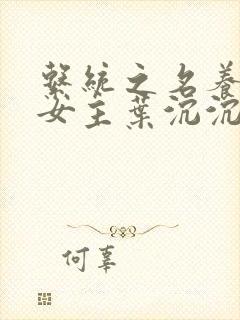 繫統之名養
女主葉沉沉
何辜